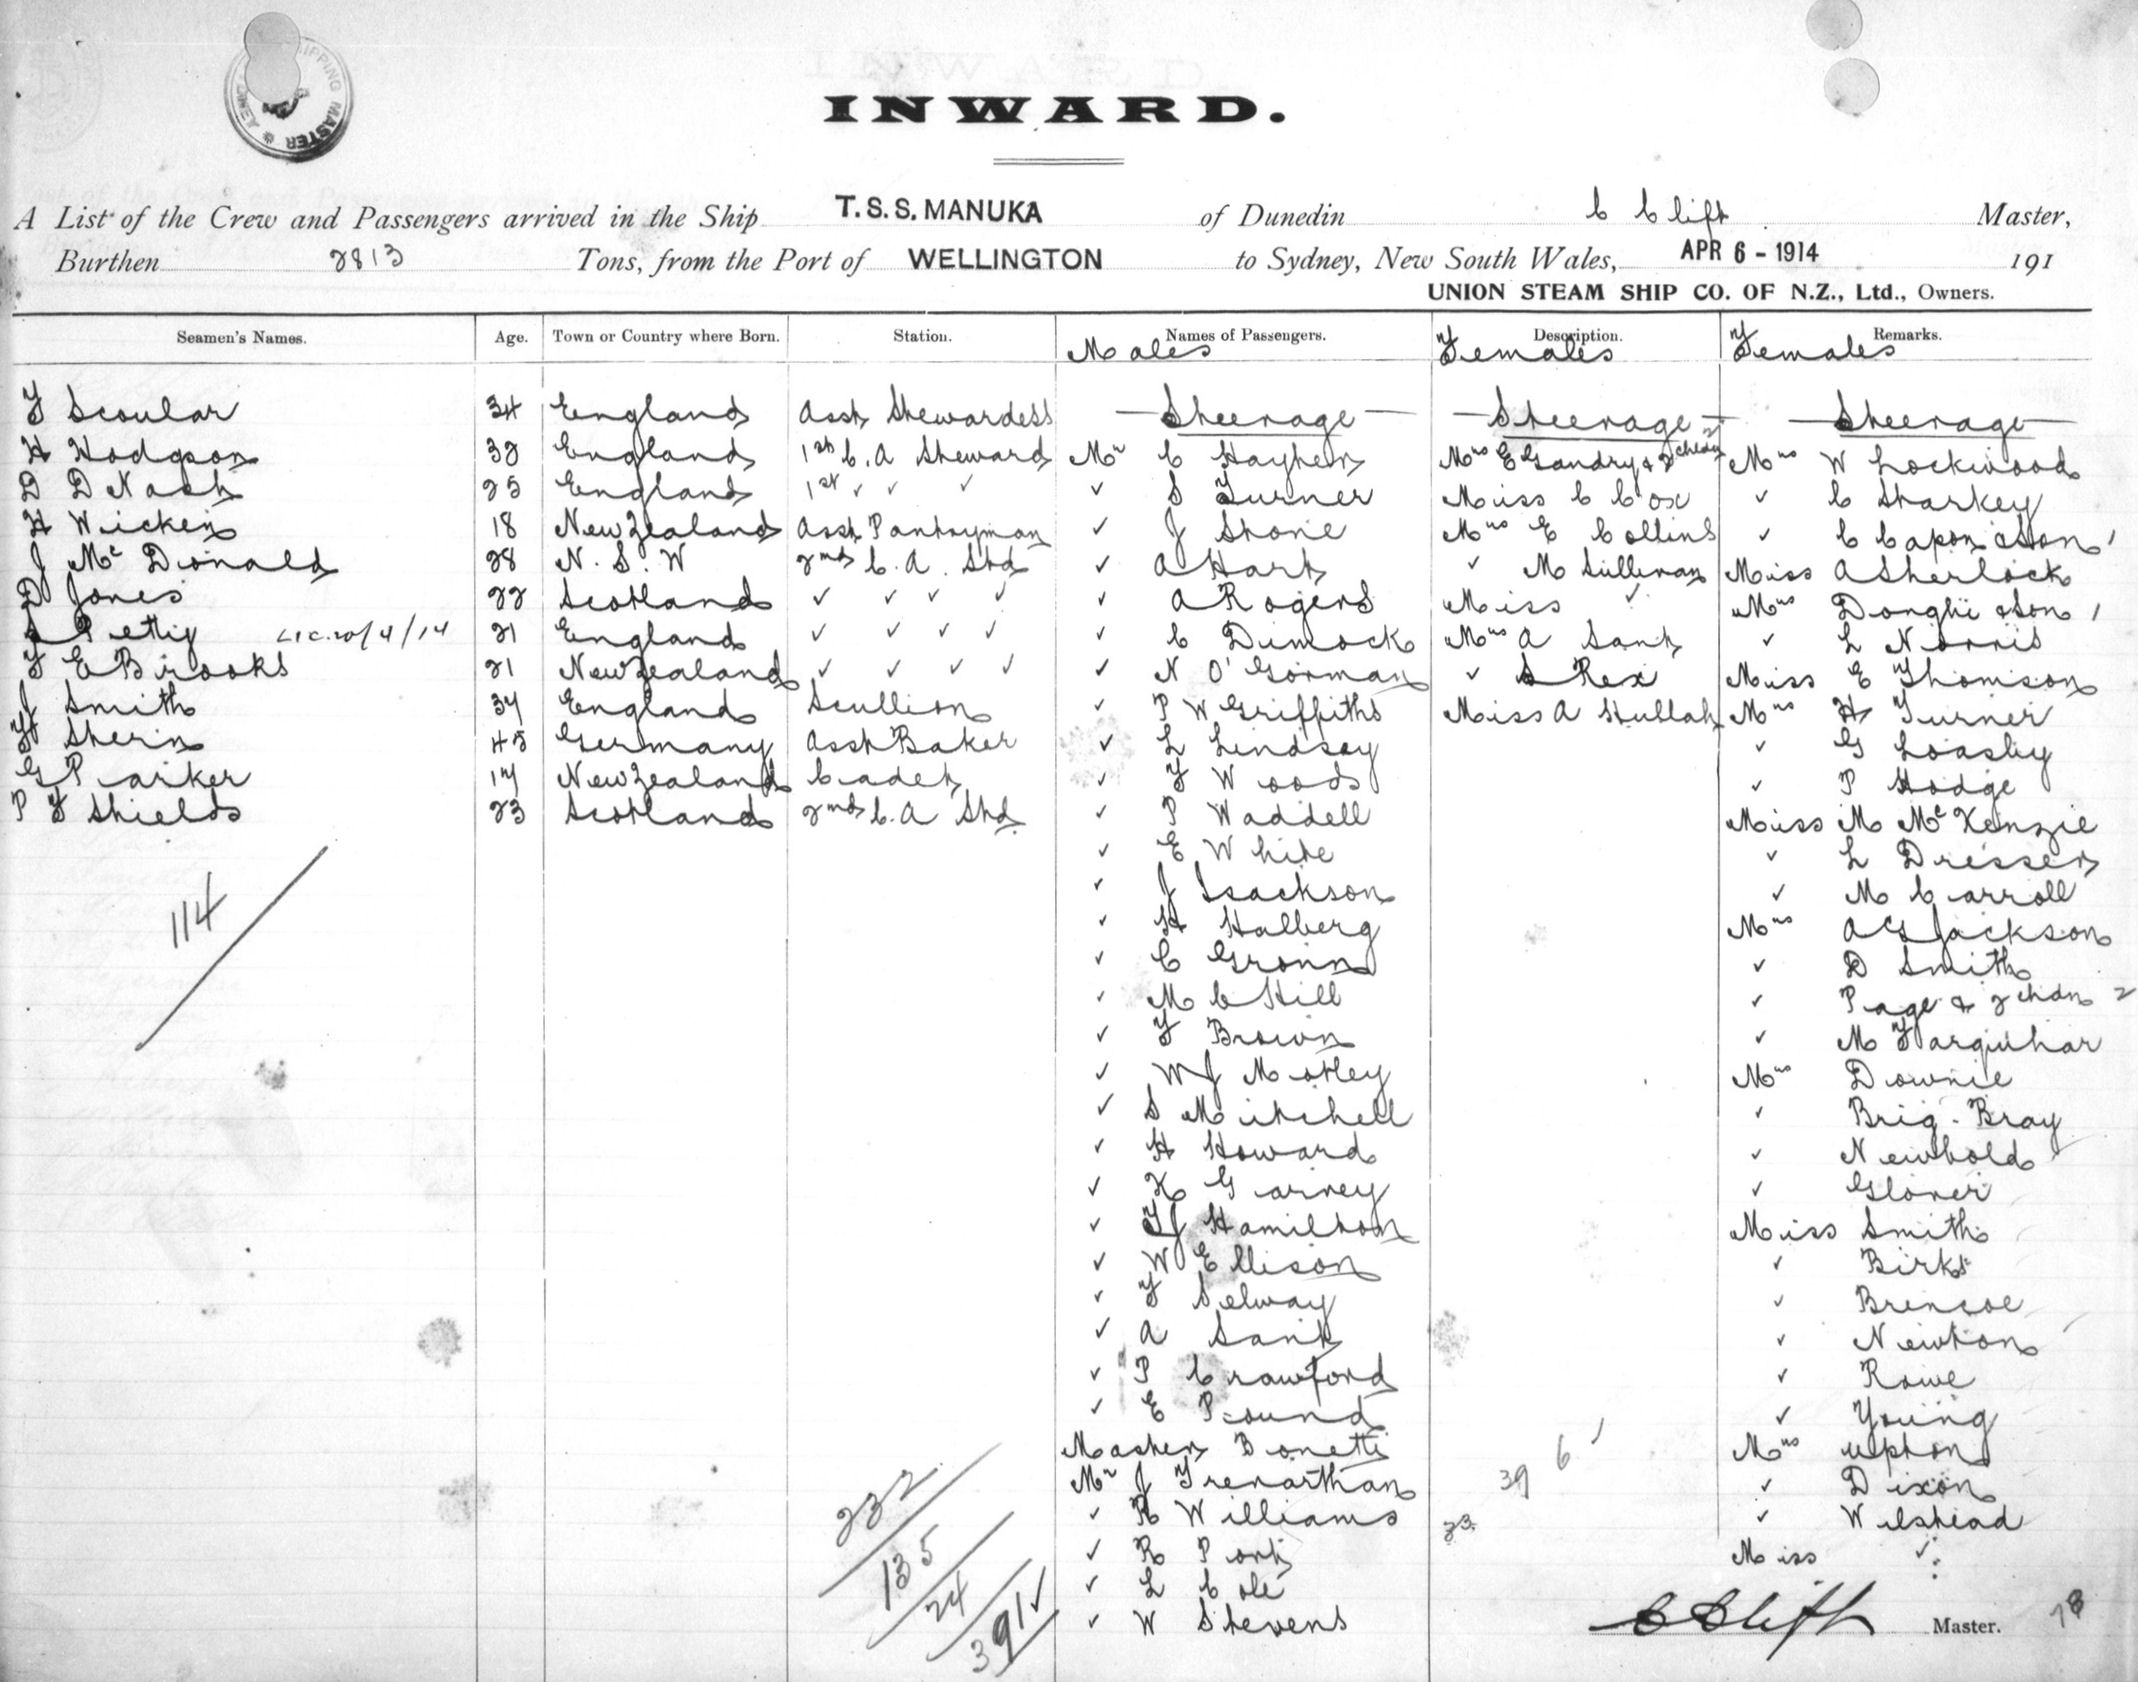 SHIPPING MASTER
INWARD.
A List of the Crew and Passengers arrived in the Ship T.S.S. MANUKA of Dunedin C Clift Master,
Burthen 2813 Tons, from the Port of WELLINGTON to Sydney, New South Wales, APR 6 - 1914 191
UNION STEAM SHIP CO. OF N.Z., Ltd., Owners.
Seamen's Names. Age. Town or Country where Born. Station. Names of Passengers. Description. Remarks.
Males Females Females
F Scoular 34 England Asst Stewardess
H Hodgson 32 England 1st C. A Steward
D D Nash 25 England 1st ✓ ✓ ✓
H Wicken 18 New Zealand Asst Pantryman
J Mc Donald 28 N. S. W 2nd C. A. Std
D Jones 22 Scotland ✓ ✓ ✓ ✓
S Pettig 21 England ✓ ✓ ✓ ✓
F E Brooks 21 New Zealand ✓ ✓ ✓ ✓
J Smith 34 England Scullion
H Sherin 45 Germany Asst Baker
G Parker 17 New Zealand Cadet
P F Shields 23 Scotland 2nd C. A Std
114
Steerage
Mr C Hayhen
✓ S Turner
✓ J Stone
✓ A Hart
✓ A Rogers
✓ C Dimock
✓ N O'Gorman
✓ P W Griffiths
✓ L Lindsay
✓ F Woods
✓ P Waddell
✓ E White
✓ J Isackson
✓ H Halberg
✓ C Gronn
✓ M C Hill
✓ F Brown
✓ W J Motley
✓ S Mitchell
✓ H Howard
✓ K Garvey
✓ F J Hamilton
✓ W Ellison
✓ F Selway
✓ A Sank
✓ P Crawford
✓ E Pound
Master Bonetti
Mr J Trenarthan
✓ R Williams
✓ R Port
✓ L Cole
✓ W Stevens
232
135
24
391 ✓
Steerage
Mrs E Gandry & 2 chldn 2
Miss C Cox
Mrs E Collins
✓ M Sullivan
Miss ✓
Mrs A Sank
✓ S Rex
Miss A Hullah
6
39
23
Steerage
Mrs W Lockwood
✓ C Sharkey
✓ C Capon & Son 1
Miss A Sherlock
Mrs Donghi & Son 1
✓ L Norris
Miss E Thomson
Mrs H Turner
✓ G Loasby
✓ P Hodge
Miss M McKenzie
✓ L Dresser
✓ M Carroll
Mrs A G Jackson
✓ D Smith
✓ Page & 2 chdn 2
✓ M Farquhar
Mrs Downie
✓ Brig. Bray
✓ Newbold
✓ Glover
Miss Smith
✓ Birks
✓ Brencoe
✓ Newton
✓ Rowe
✓ Young
Mrs Upton
✓ Dixon
✓ Wilshead
Miss ✓
C Clift Master.
78